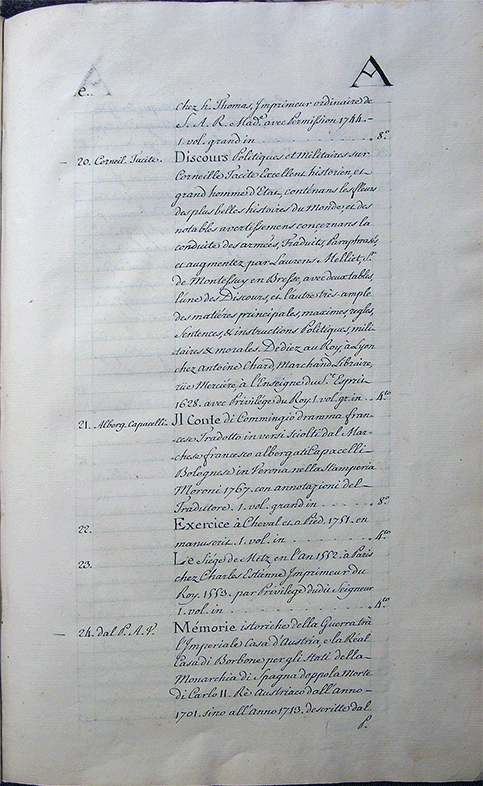 A
e..
A
chez h. Thomas, Imprimeur ordinaire de
S. A. R. Mad.e avec Permission 1744.
1. vol. grand in . . . . . . . . . . 8.o
20. Corneil. Tacite. Discours Politiques et Militaires sur
Corneille Tacite Excellent historien, et
grand homme d'Etat, contenans les fleurs
des plus belles histoires du Monde, et des
notables avertissemens concernans la
conduite des armées, Traduits, Paraphrasés,
et augmentez par Laurens Melliet, S.r
de Montessuy en Bresse, avec deux tables,
l'une des Discours, et l'autre très-ample
des matières principales, maximes, regles,
Sentences, & instructions Politiques, mili-
taires & morales. Dediez au Roy, à Lyon
chez Antoine Chard, Marchand Libraire,
rüe Merciere, à l'Enseigne du S.t Esprit
1628. avec Privilége du Roy. 1. vol. gr. in . . 4.to
21. Alberg. Capacelli. Il Conte di Commingio dramma fran-
cese Tradotto in versi Sciolti dal Mar-
chese francesco albergati Capacelli
Bolognese in Verona nella Stamperia
Moroni 1767. con annotazioni del
Traduttore. 1. vol. grand in . . . . 8.o
22. Exercice à Cheval et a Pied. 1751. en
manuscrit. 1. vol. in . . . . . . . 4.to
23. Le Siége de Metz en l'An 1552. à Paris
chez Charles Estienne Imprimeur du
Roy. 1553. par Privilege dudit Seigneur
1. vol. in . . . . . . . . . . 4.to
24. dal P. A. V. Mémorie istoriche della Guerra trà
l'Imperiale Casa d'Austria, e la Réal
Casa di Borbone per gli Stati della
Monarchia di Spagna doppo la Morte
di Carlo II. Rè Austriaco dall'Anno
1701. sino all'Anno 1713. descritte dal
P.